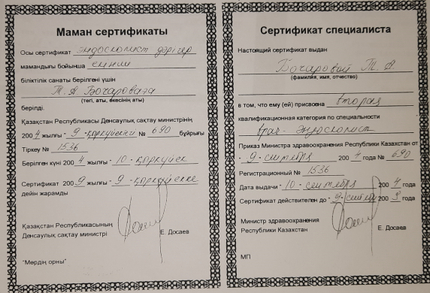 Маман сертификаты
Осы сертификат эндоскопист дәрігер
мамандығы бойынша екінші
біліктілік санаты берілгені үшін
Т. А. Бочароваға
(тегі, аты, әкесінің аты)
берілді.
Қазақстан Республикасы Денсаулық сақтау министрінің
200 4 жылғы " 9 - қыркүйекі № 690 бұйрығы
Тіркеу № 1536
Берілген күні 200 4 жылғы - 10 - қыркүйек
Сертификат 200 9 жылғы " 9 - қыркүйекке
дейін жарамды
Қазақстан Республикасының
Денсаулық сақтау министрі
Е. Досаев
"Мөрдің орны"
Сертификат специалиста
Настоящий сертификат выдан
Бочаровой Т. А.
(фамилия, имя, отчество)
в том, что ему (ей) присвоена вторая
квалификационная категория по специальности
врач-эндоскопист
Приказ Министра здравоохранения Республики Казахстан от
- 9 - сентября 200 4 года № 690
Регистрационный № 1536
Дата выдачи - 10 - сентября 200 4 года
Сертификат действителен до - 9 - 200 года
Министр здравоохранения
Республики Казахстан
Е. Досаев
МП